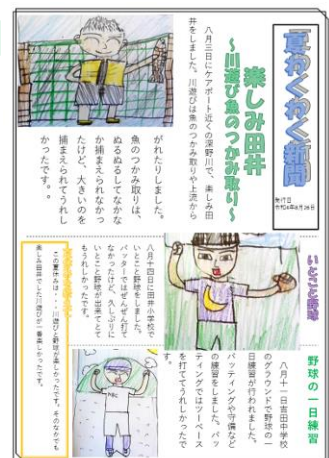 夏わくわく新聞
発行日
令和6年8月26日
楽しみ田井
～川遊び魚のつかみ取り～
八月三日にケアポート近くの深野川で、楽しみ田
井をしました。川遊びは魚のつかみ取りや上流から
がれたりしました。
魚のつかみ取りは、
ぬるぬるしてなかな
か捕まえられなかっ
たけど、大きいのを
捕まえられてうれし
かったです。
いとこと野球
八月十四日に田井小学校で
いとこと野球をしました。
バッターではぜんぜん打て
なかったけど、久しぶりに
いとこと野球が出来てとて
もうれしかったです。
野球の一日練習
八月十一日吉田中学校
のグラウンドで野球の一
日練習が行われました。
バッティングや守備など
の練習をしました。バッ
ティングではツーベース
を打ててうれしかったで
す。
この夏休みは・・・川遊びと野球が楽しかったです。そのなかでも
楽しみ田井でした川遊びが一番楽しかったです。